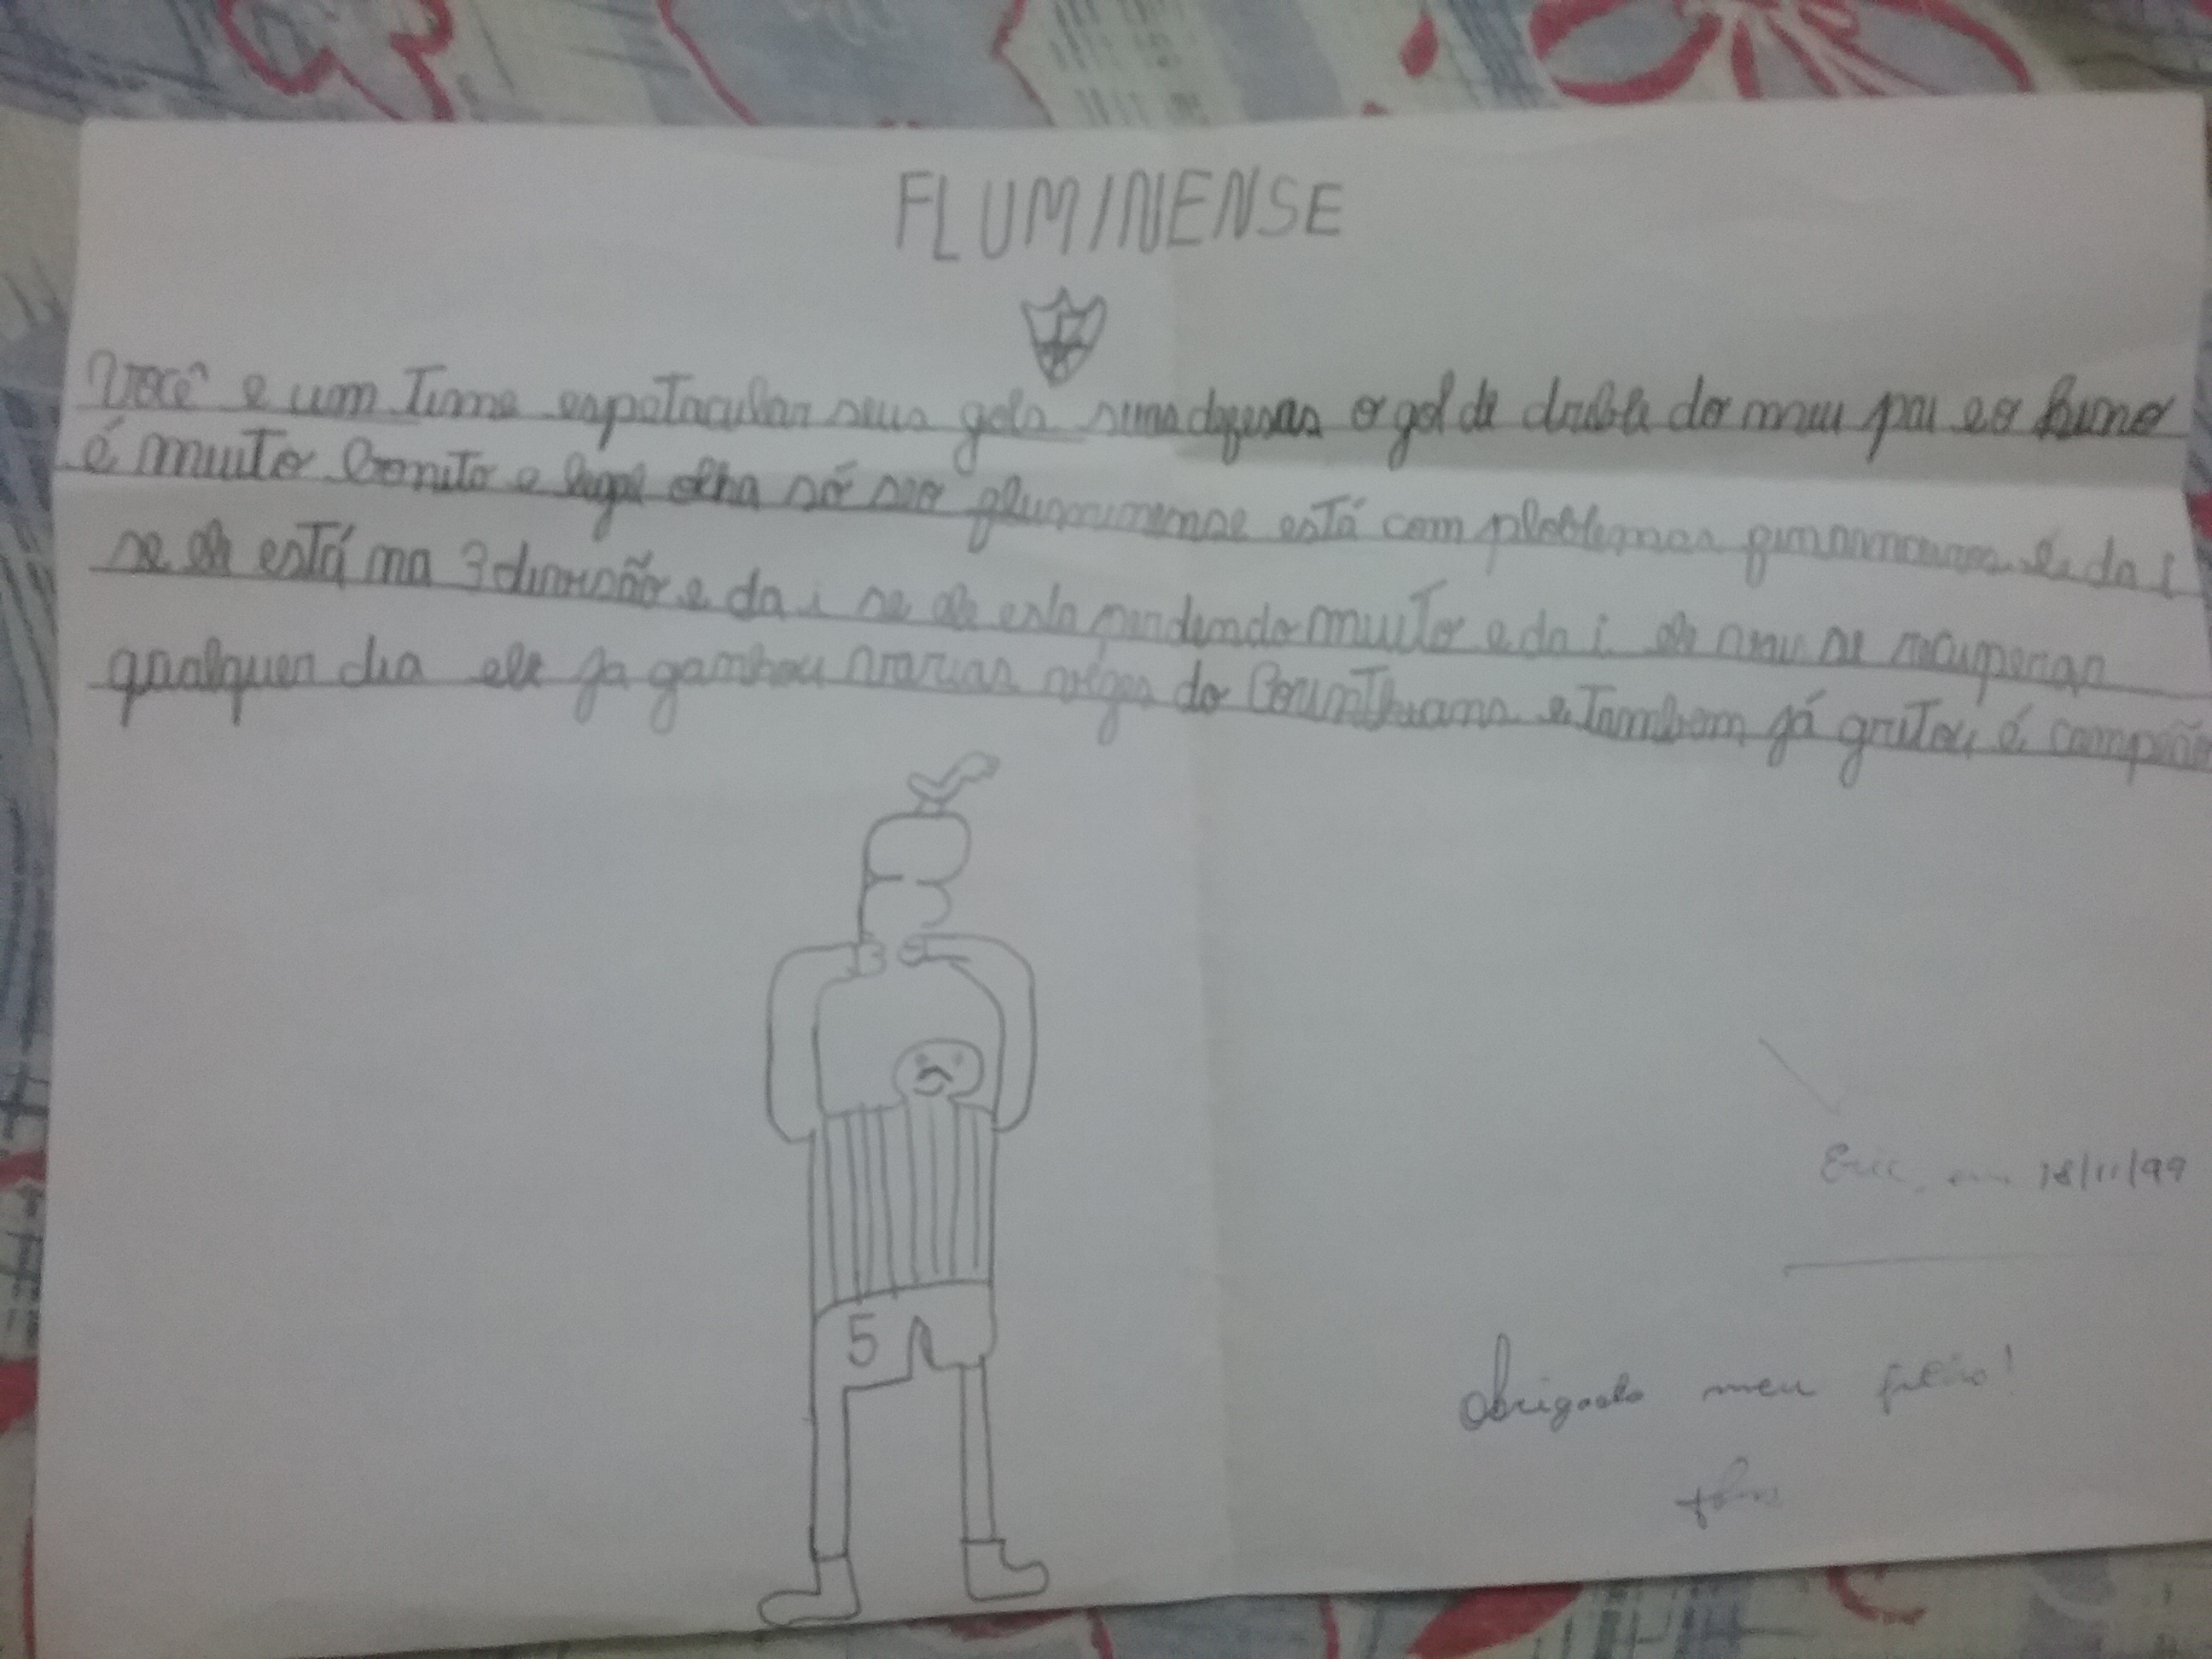 FLUMINENSE
Você e um Time espetacular seus gols suas defesas o gol de dribla do meu pai e o hino
é muito bonito e legal olha só se o fluminense está com ploblemas financeiros e da i
se ele está na 3 divisão e da i se ele esta perdendo muito e da i ele vai se recuperar
qualquer dia ele ja ganhou varias vezes do Corinthians e Tambem já gritou é campeão
5
Eric, em 18/11/99
Obrigado meu filho!